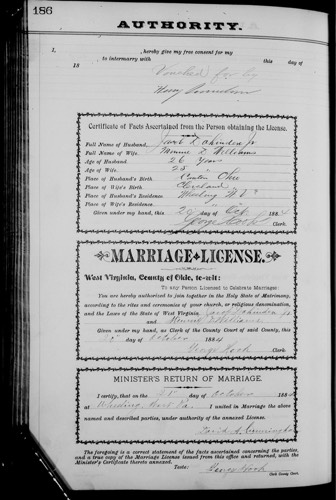 186
AUTHORITY.
1. , hereby give my free consent for my
to intermarry with this day of
18 Vouched for by
Certificate of Facts Ascertained from the Person obtaining the License.
Full Name of Husband, Jacob Jr
Full Name of Wife, Minnie Z Williams
Age of Husband, 26 Years
Age of Wife, 23 "
Place of Husband's Birth, Canton Ohio
Place of Wife's Birth, Cleveland "
Place of Husband's Residence, Wheeling W. Va
Place of Wife's Residence, "
Given under my hand, this 29 day of Oct 1884
George Hook Clerk.
MARRIAGE LICENSE.
West Virginia, County of Ohio, to-wit:
To any Person Licensed to Celebrate Marriages:
You are hereby authorized to join together in the Holy State of Matrimony,
according to the rites and ceremonies of your church, or religious denomination,
and the Laws of the State of West Virginia, Jacob Jr
and Minnie Z Williams
Given under my hand, as Clerk of the County Court of said County, this
day of October 1884
George Hook Clerk.
MINISTER'S RETURN OF MARRIAGE.
I certify, that on the day of October 1884
at Wheeling, West Va. I united in Marriage the above
named and described parties, under authority of the annexed License.
David A. Cunningham
The foregoing is a correct statement of the facts ascertained concerning the parties,
and a true copy of the Marriage License issued from this office and returned, with the
Minister's Certificate thereto annexed.
Teste: George Hook
Clerk County Court.